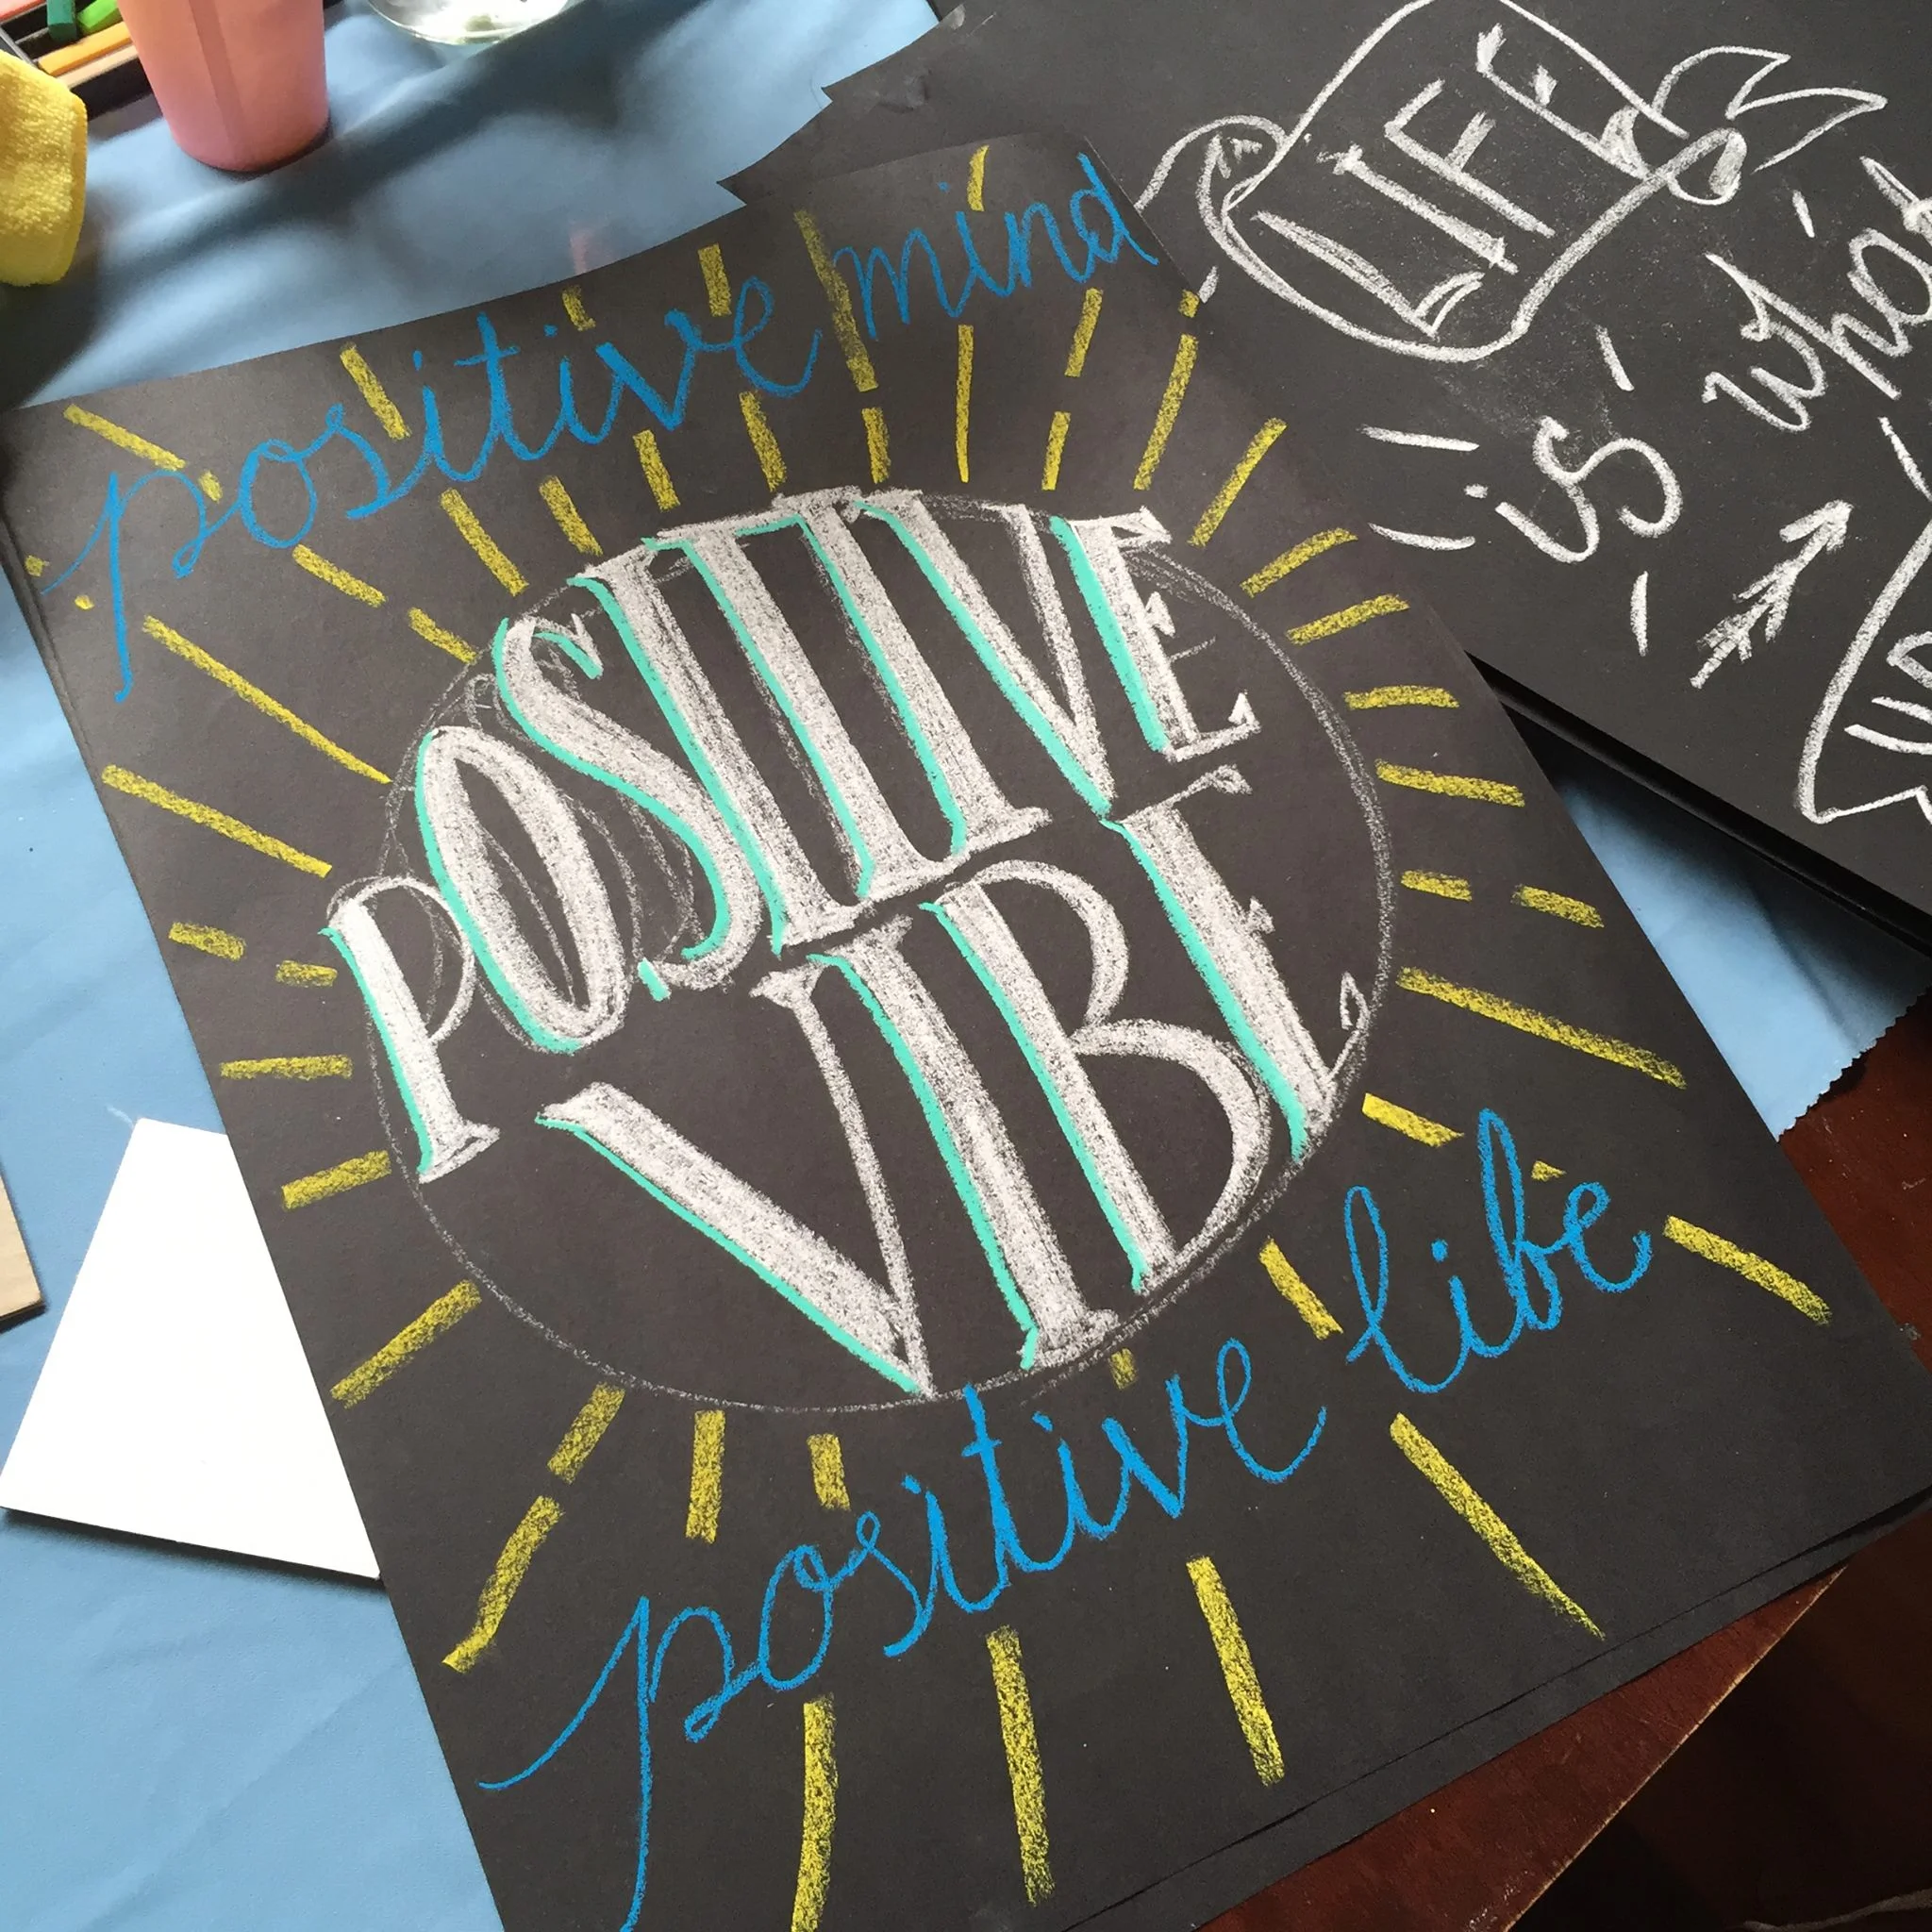 positive mind
POSITIVE
VIBE
positive libe
LIFE
is what